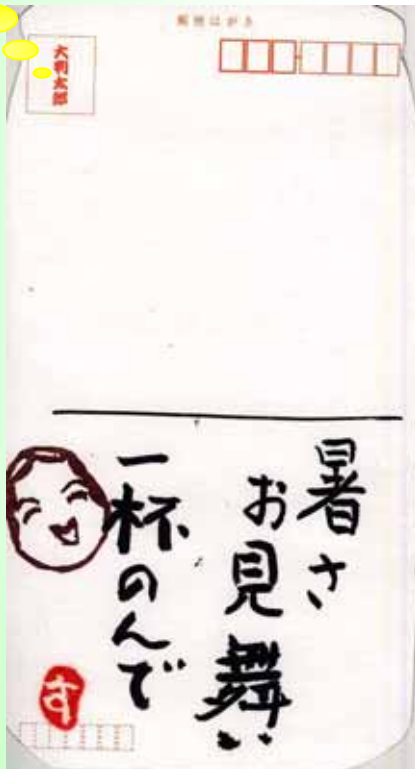 郵便はがき
大判太郎
暑さ
お見舞い
一杯のんで
す